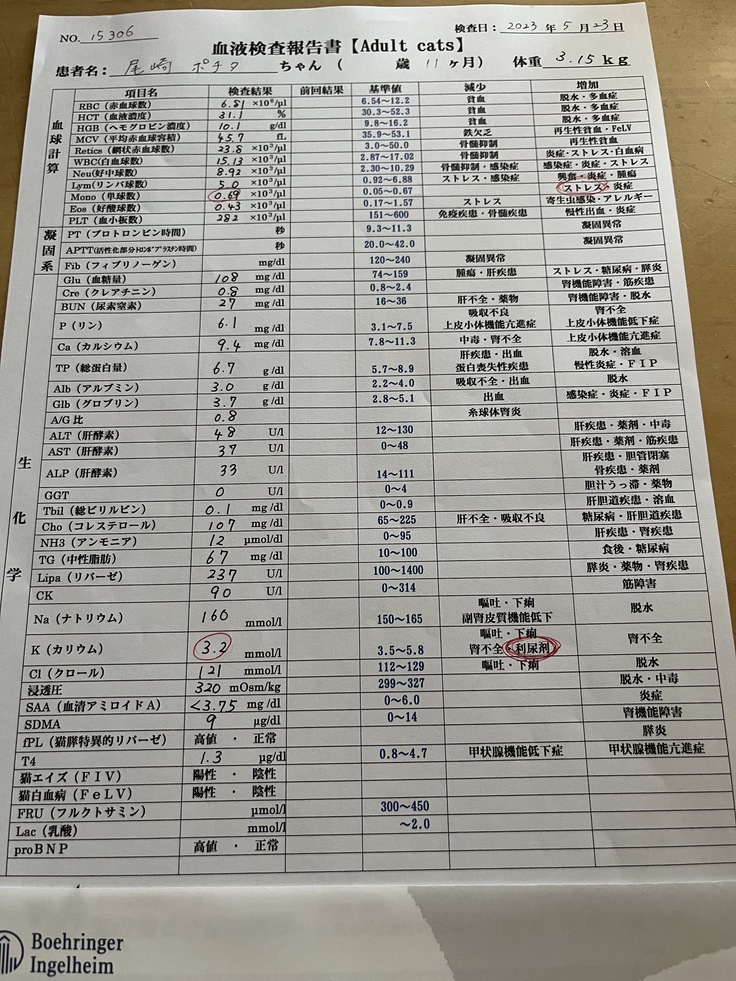 NO. 15306 検査日: 2023 年 5 月 23 日
血液検査報告書【Adult cats】
患者名: 尾崎 ポチタ ちゃん ( 歳 11 ヶ月) 体重 3.15 kg
項目名 検査結果 前回結果 基準値 減少 増加
血球計算
RBC (赤血球数) 6.81 ×10⁶/μl 6.54~12.2 貧血 脱水・多血症
HCT (血液濃度) 31.1 % 30.3~52.3 貧血 脱水・多血症
HGB (ヘモグロビン濃度) 10.1 g/dl 9.8~16.2 貧血 脱水・多血症
MCV (平均赤血球容積) 45.7 fL 35.9~53.1 鉄欠乏 再生性貧血・FeLV
Retics (網状赤血球数) 23.8 ×10³/μl 3.0~50.0 骨髄抑制 再生性貧血
WBC(白血球数) 15.13 ×10³/μl 2.87~17.02 骨髄抑制 炎症・ストレス・白血病
Neu(好中球数) 8.92 ×10³/μl 2.30~10.29 骨髄抑制・感染症 感染症・炎症・ストレス
Lym(リンパ球数) 5.0 ×10³/μl 0.92~6.88 ストレス・感染症 興奮・炎症・腫瘍
Mono (単球数) 0.69 ×10³/μl 0.05~0.67 ストレス・炎症
Eos (好酸球数) 0.43 ×10³/μl 0.17~1.57 ストレス 寄生虫感染・アレルギー
PLT (血小板数) 282 ×10³/μl 151~600 免疫疾患・骨髄疾患 慢性出血・炎症
凝固系
PT (プロトロンビン時間) 秒 9.3~11.3 凝固異常
APTT(活性化部分トロンボプラスチン時間) 秒 20.0~42.0 凝固異常
Fib (フィブリノーゲン) mg/dl 120~240 凝固異常
生化学
Glu (血糖量) 108 mg/dl 74~159 腫瘍・肝疾患 ストレス・糖尿病・膵炎
Cre (クレアチニン) 0.8 mg/dl 0.8~2.4 腎機能障害・筋疾患
BUN (尿素窒素) 27 mg/dl 16~36 肝不全・薬物 腎機能障害・脱水
P (リン) 6.1 mg/dl 3.1~7.5 吸収不良 腎不全
上皮小体機能亢進症 上皮小体機能低下症
Ca (カルシウム) 9.4 mg/dl 7.8~11.3 中毒・腎不全 上皮小体機能亢進症
TP (総蛋白量) 6.7 g/dl 5.7~8.9 肝疾患・出血 脱水・溶血
蛋白喪失性疾患 慢性炎症・FIP
Alb (アルブミン) 3.0 g/dl 2.2~4.0 吸収不全・出血 脱水
Glb (グロブリン) 3.7 g/dl 2.8~5.1 出血 感染症・炎症・FIP
A/G 比 0.8 糸球体腎炎
ALT (肝酵素) 48 U/l 12~130 肝疾患・薬剤・中毒
AST (肝酵素) 37 U/l 0~48 肝疾患・薬剤・筋疾患
ALP (肝酵素) 33 U/l 14~111 肝疾患・胆管閉塞
骨疾患・薬剤
GGT 0 U/l 0~4 胆汁うっ滞・薬物
Tbil (総ビリルビン) 0.1 mg/dl 0~0.9 肝胆道疾患・溶血
Cho (コレステロール) 107 mg/dl 65~225 肝不全・吸収不良 糖尿病・肝胆道疾患
NH3 (アンモニア) 12 μmol/dl 0~95 肝疾患・腎疾患
TG (中性脂肪) 67 mg/dl 10~100 食後・糖尿病
Lipa (リパーゼ) 237 U/l 100~1400 膵炎・薬物・腎疾患
CK 90 U/l 0~314 筋障害
Na (ナトリウム) 160 mmol/l 150~165 嘔吐・下痢 脱水
副腎皮質機能低下
K (カリウム) 3.2 mmol/l 3.5~5.8 嘔吐・下痢 腎不全
腎不全・利尿剤
Cl (クロール) 121 mmol/l 112~129 嘔吐・下痢 脱水
浸透圧 320 mOsm/kg 299~327 脱水・中毒
SAA (血清アミロイドA) <3.75 mg/dl 0~6.0 炎症
SDMA 9 μg/dl 0~14 腎機能障害
fPL (猫膵特異的リパーゼ) 高値 ・ 正常 膵炎
T4 1.3 μg/dl 0.8~4.7 甲状腺機能低下症 甲状腺機能亢進症
猫エイズ (FIV) 陽性 ・ 陰性
猫白血病 (FeLV) 陽性 ・ 陰性
FRU (フルクトサミン) μmol/l 300~450
Lac (乳酸) mmol/l ~2.0
proBNP 高値 ・ 正常
Boehringer
Ingelheim